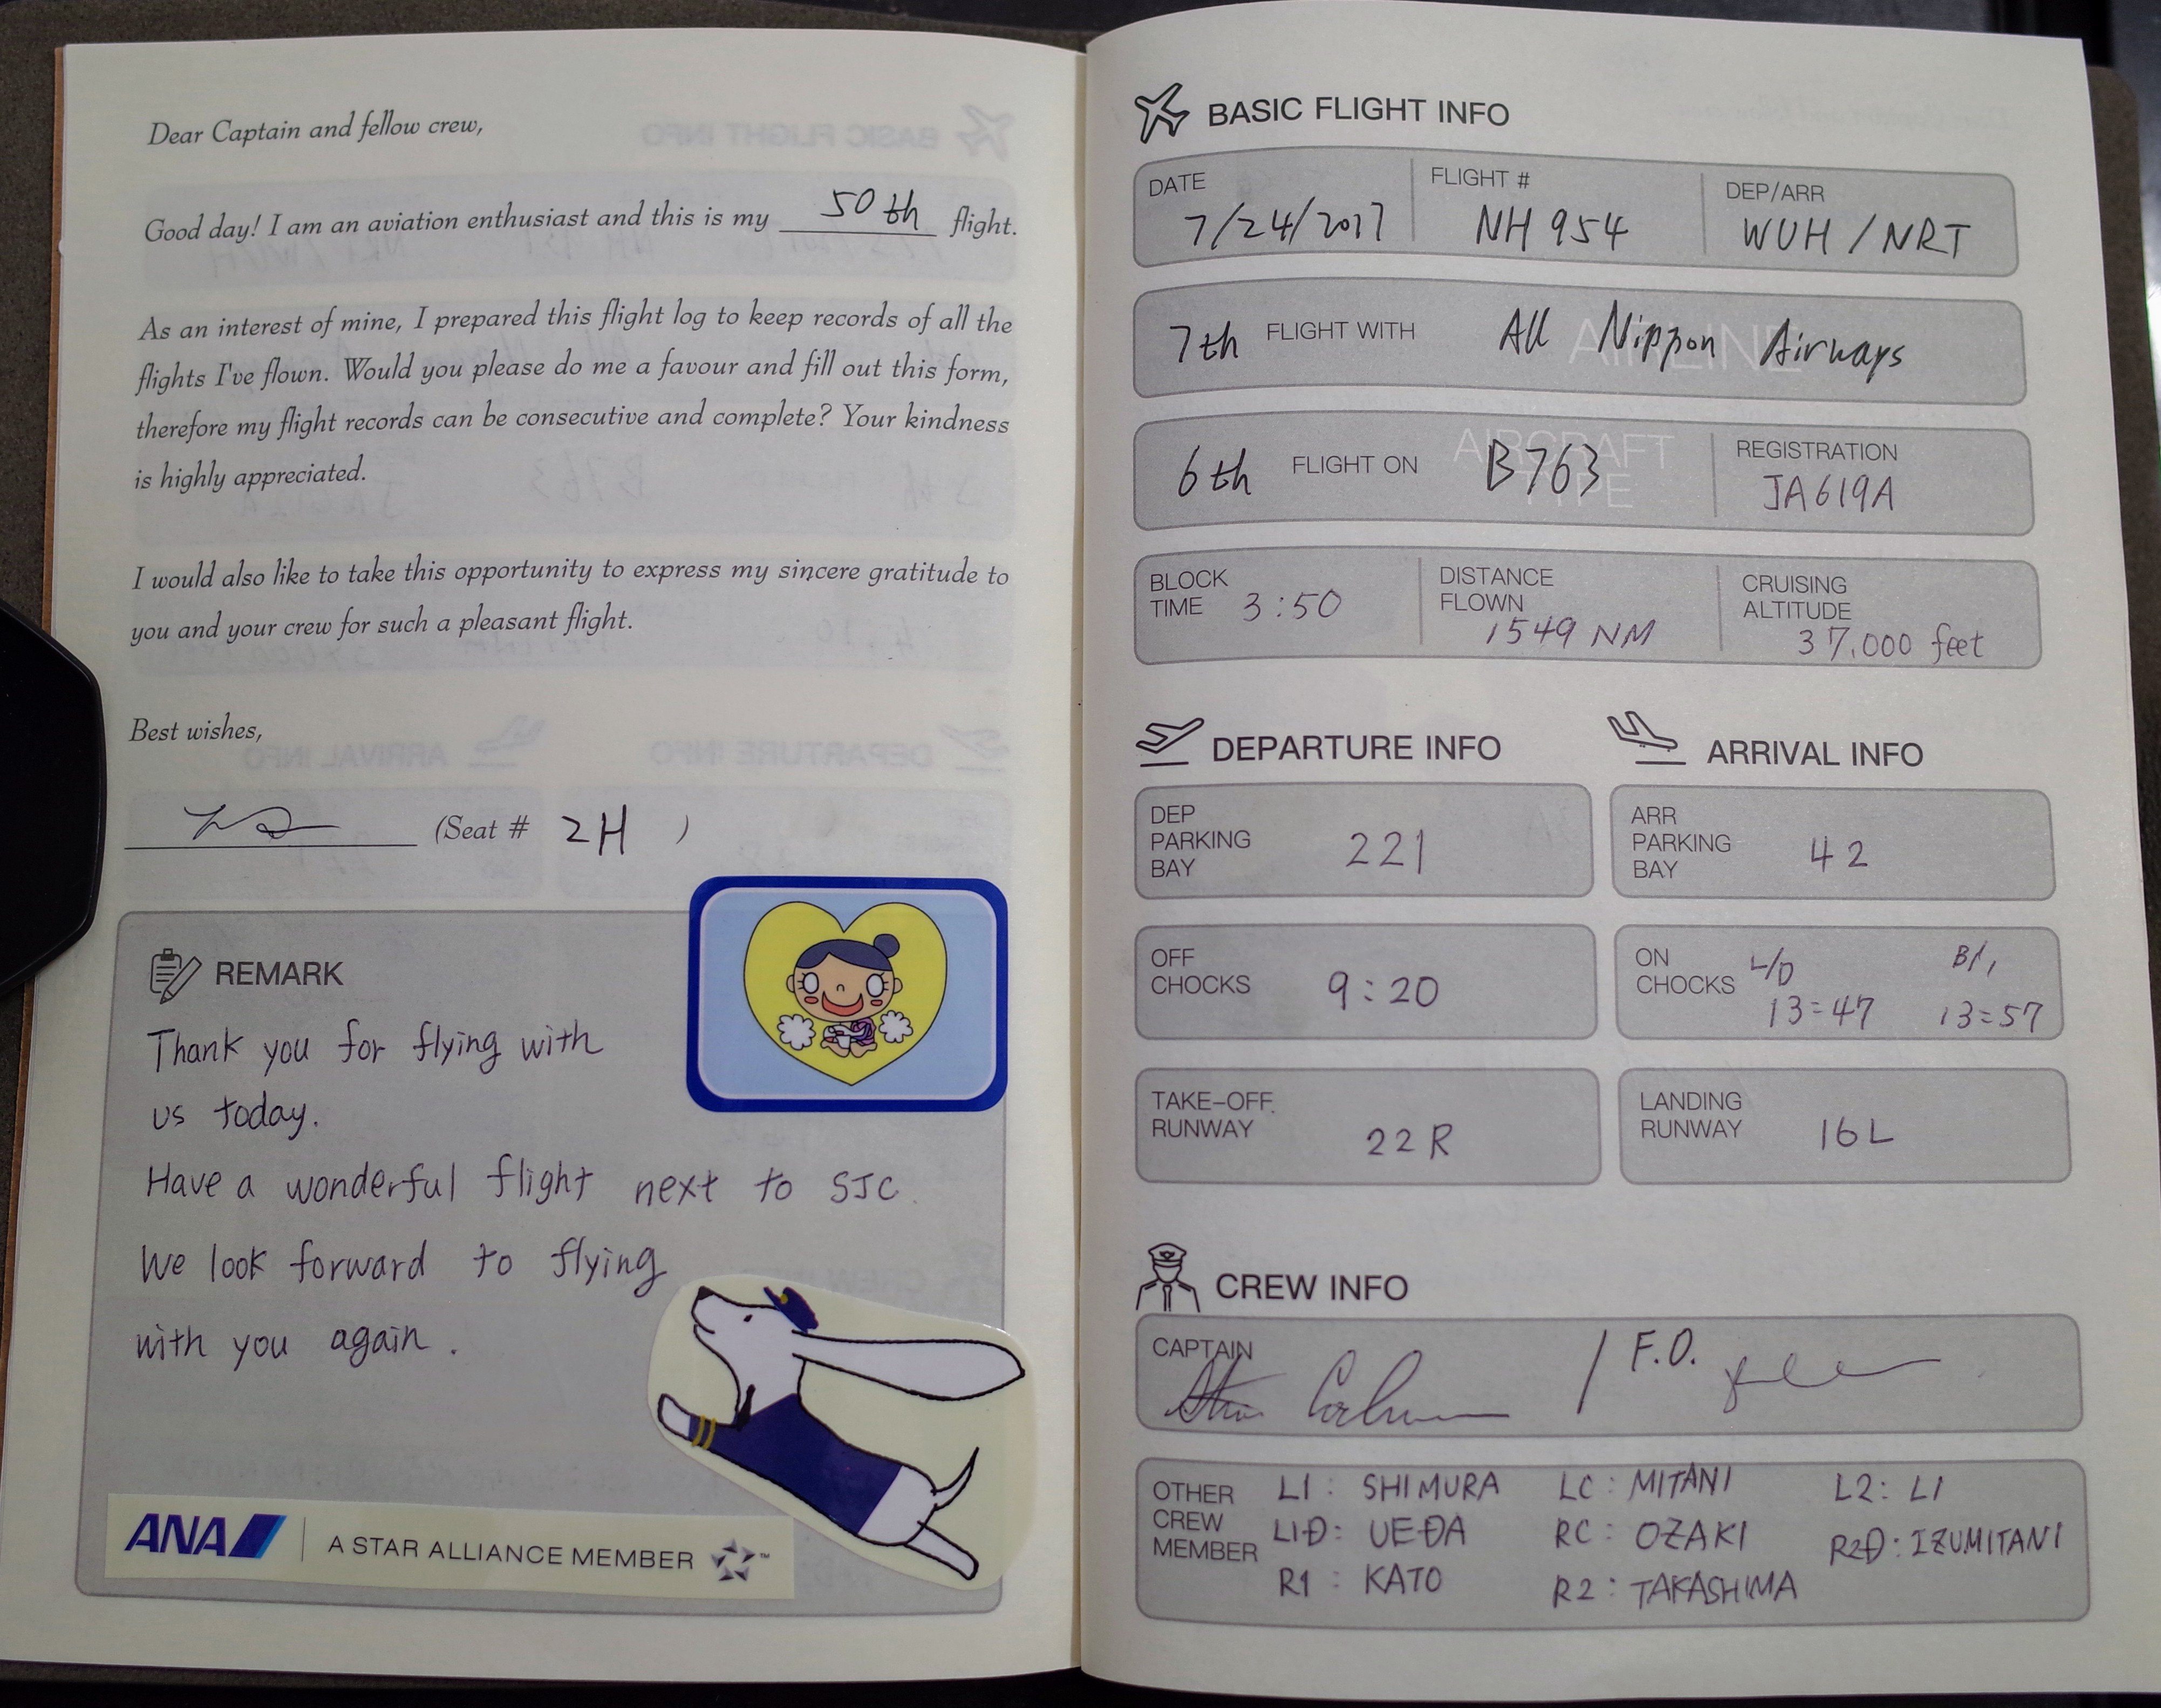 Dear Captain and fellow crew,
Good day! I am an aviation enthusiast and this is my 50th flight.
As an interest of mine, I prepared this flight log to keep records of all the
flights I've flown. Would you please do me a favour and fill out this form,
therefore my flight records can be consecutive and complete? Your kindness
is highly appreciated.
I would also like to take this opportunity to express my sincere gratitude to
you and your crew for such a pleasant flight.
Best wishes,
(Seat # 2H )
REMARK
Thank you for flying with
us today.
Have a wonderful flight next to SJC.
We look forward to flying
with you again.
ANA A STAR ALLIANCE MEMBER ™
BASIC FLIGHT INFO
DATE FLIGHT # DEP/ARR
7/24/2017 NH 954 WUH / NRT
AIRLINE
7th FLIGHT WITH All Nippon Airways
AIRCRAFT TYPE
6th FLIGHT ON B763 REGISTRATION
JA619A
BLOCK DISTANCE CRUISING
TIME 3:50 FLOWN ALTITUDE
1549 NM 37,000 feet
DEPARTURE INFO ARRIVAL INFO
DEP ARR
PARKING 221 PARKING 42
BAY BAY
OFF ON L/D B/I
CHOCKS 9:20 CHOCKS 13:47 13:57
TAKE-OFF LANDING
RUNWAY 22R RUNWAY 16L
CREW INFO
CAPTAIN / F.O.
OTHER L1: SHIMURA LC: MITANI L2: LI
CREW L1D: UEDA RC: OZAKI R2D: IZUMITANI
MEMBER R1: KATO R2: TAKASHIMA